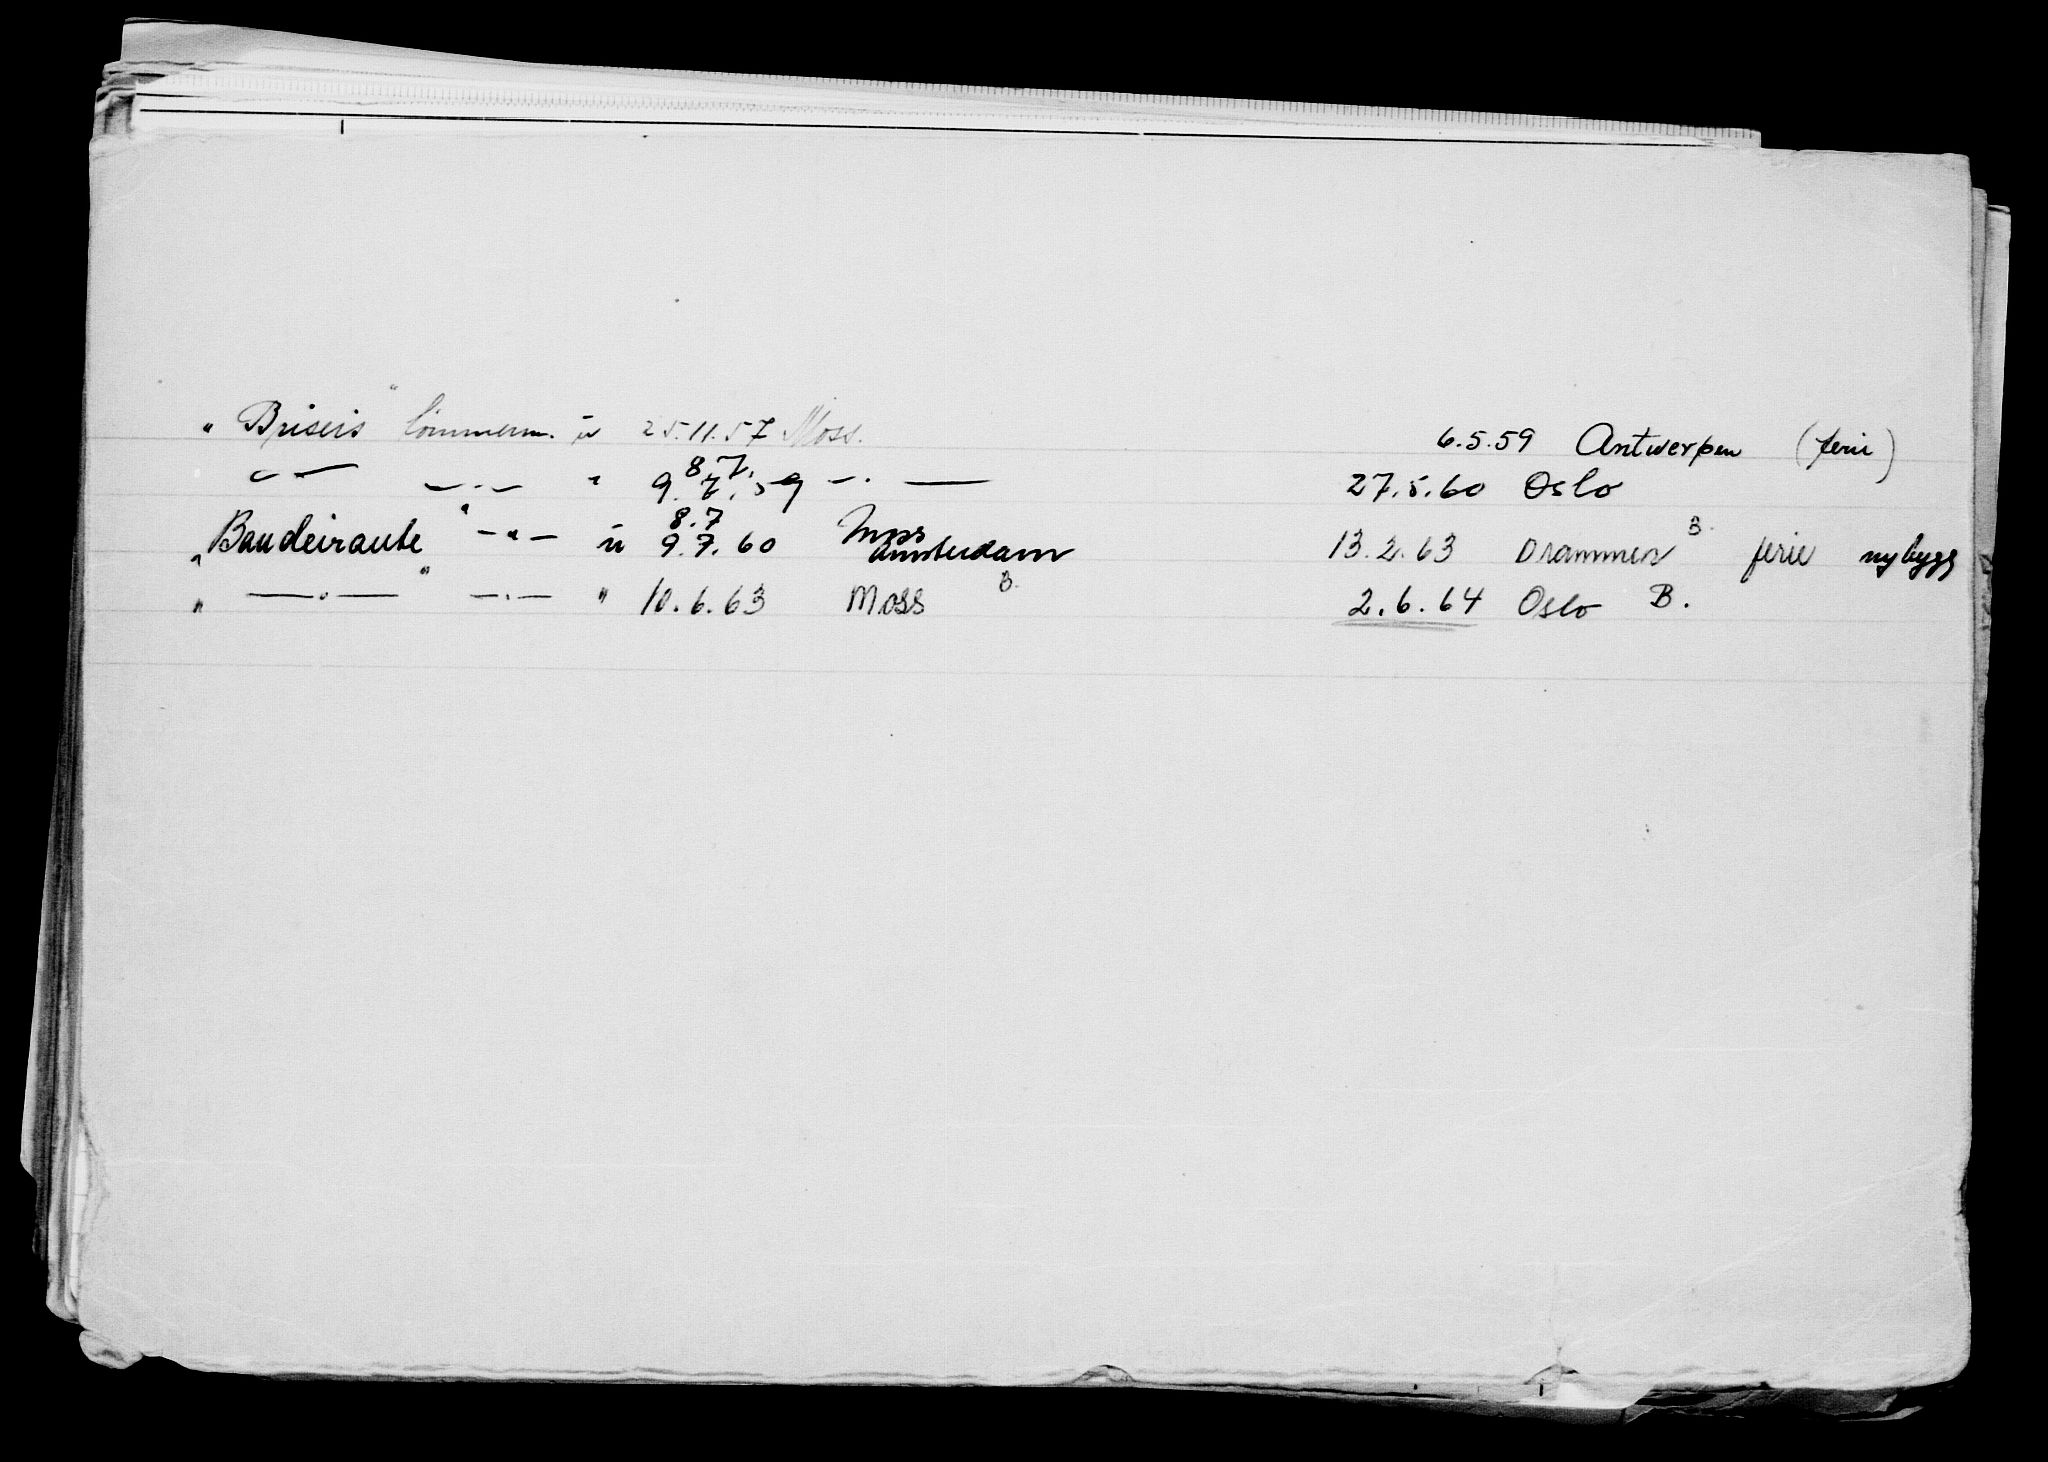 "Briseis" tømmerm. ü 25.11.57 Moss. 6.5.59 Antwerpen (ferie)
— — —.— " 8.7. 9.7.59 —.— 27.5.60 Oslo
"Bandeirante" —"— ü 8.7 9.7.60 Moss Amsterdam 13.2.63 Drammen B. ferie nybygg
" —"— —.— " 10.6.63 Moss B. 2.6.64 Oslo B.